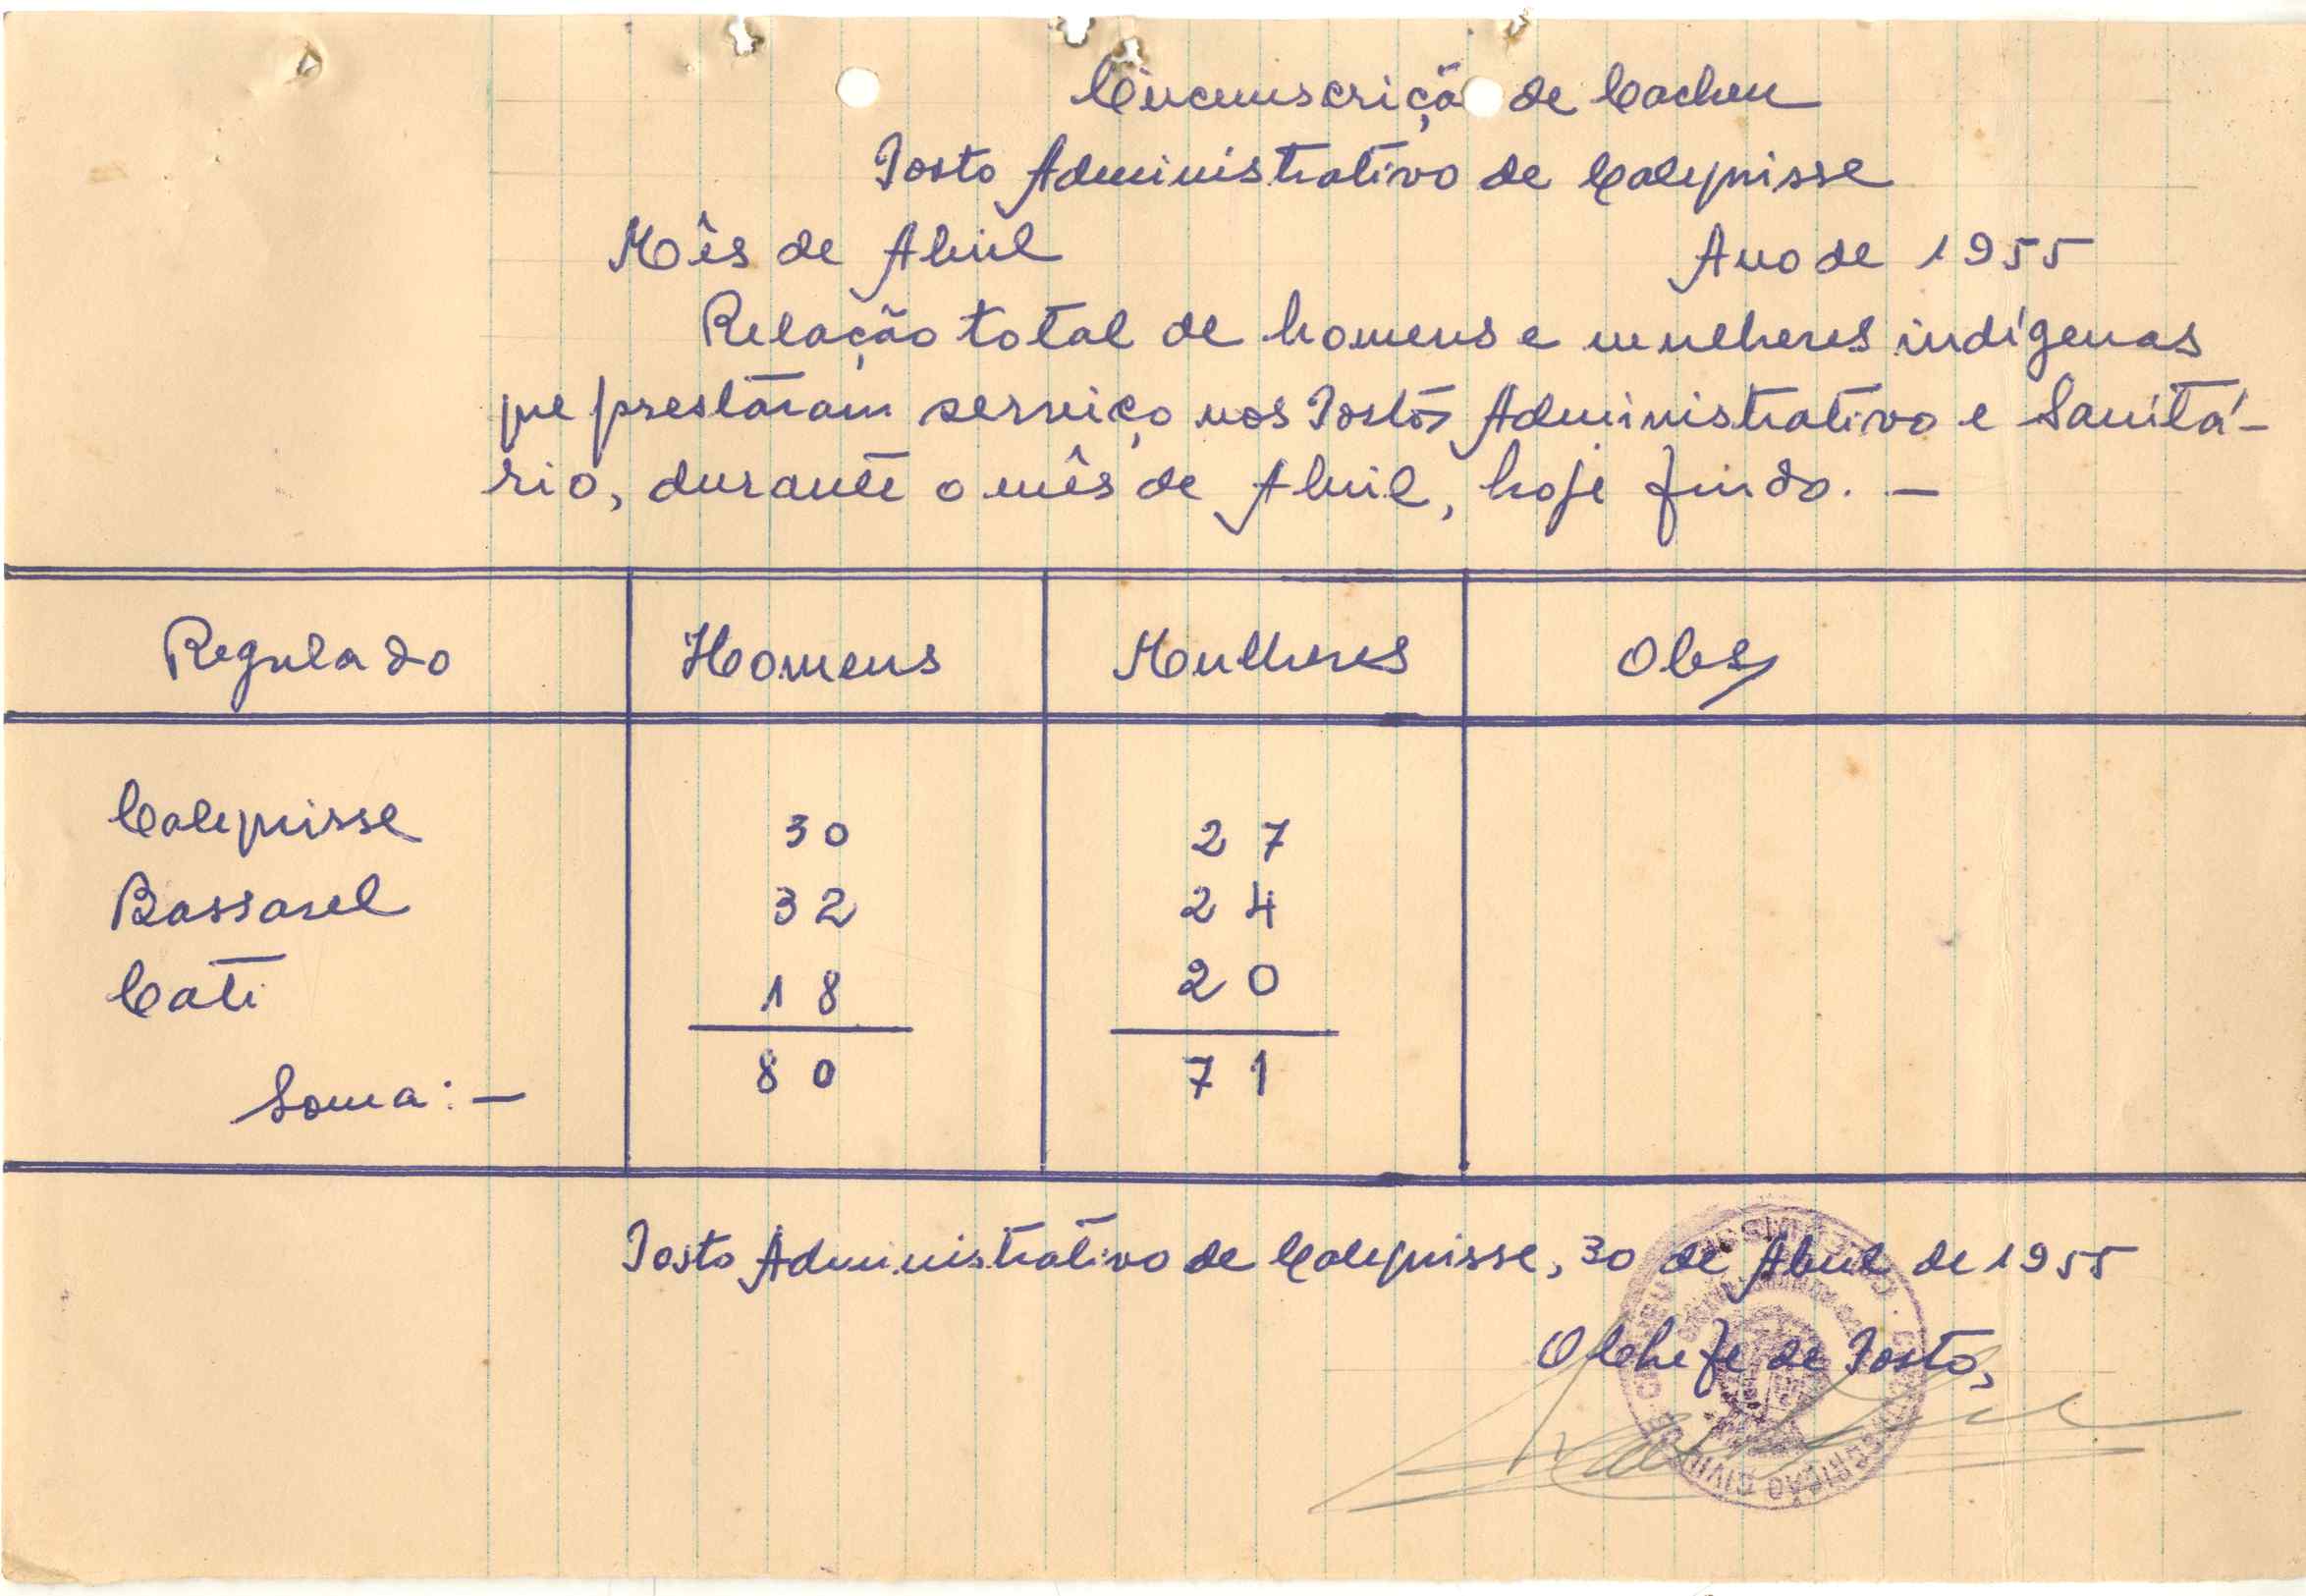 Circunscrição de Cacheu
Posto Administrativo de Calequisse
Mês de Abril Ano de 1955
Relação total de homens e mulheres indígenas
que prestaram serviço nos Postos Administrativo e Sanitá-
rio, durante o mês de Abril, hoje findo. —
Regulado Homens Mulheres Obs
Calequisse 30 27
Bassarel 32 24
Cati 18 20
Soma:— 80 71
Posto Administrativo de Calequisse, 30 de Abril de 1955
O Chefe de Posto,